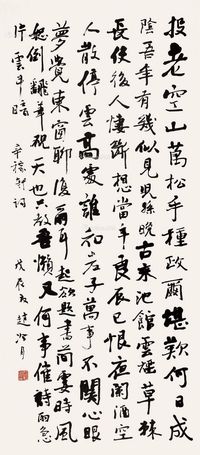 投老空山萬松手種政爾堪歎何日成
陰吾年有幾似見兒孫晚古來池館雲煙草棘
長使後人悽斷想當年良辰已恨夜闌酒空
人散停雲高處誰知老子萬事不關心眼
夢覺東窗聊復爾耳起欲題書簡霎時風
怒倒翻筆硯天也只教吾懶又何事催詩雨急
片雲斗暗 辛稼軒詞
戊辰夏 趙冷月